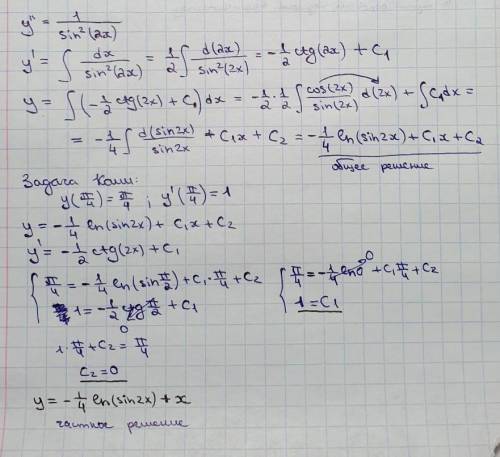 y'' = 1/sin²(2x)
y' = ∫ dx/sin²(2x) = 1/2 ∫ d(2x)/sin²(2x) = -1/2 ctg(2x) + C₁
y = ∫(-1/2 ctg(2x) + C₁)dx = -1/2 · 1/2 ∫ cos(2x)/sin(2x) d(2x) + ∫C₁dx =
= -1/4 ∫ d(sin2x)/sin2x + C₁x + C₂ = -1/4 ln(sin2x) + C₁x + C₂
общее решение
Задача Коши:
y(π/4) = π/4 ; y'(π/4) = 1
y = -1/4 ln(sin2x) + C₁x + C₂
y' = -1/2 ctg(2x) + C₁
{ π/4 = -1/4 ln(sin π/2) + C₁·π/4 + C₂
1 = -1/2 ctg π/2 + C₁
0
{ π/4 = -1/4 ln + C₁ π/4 + C₂
0
1 = C₁
1·π/4 + C₂ = π/4
C₂ = 0
y = -1/4 ln(sin2x) + x
частное решение